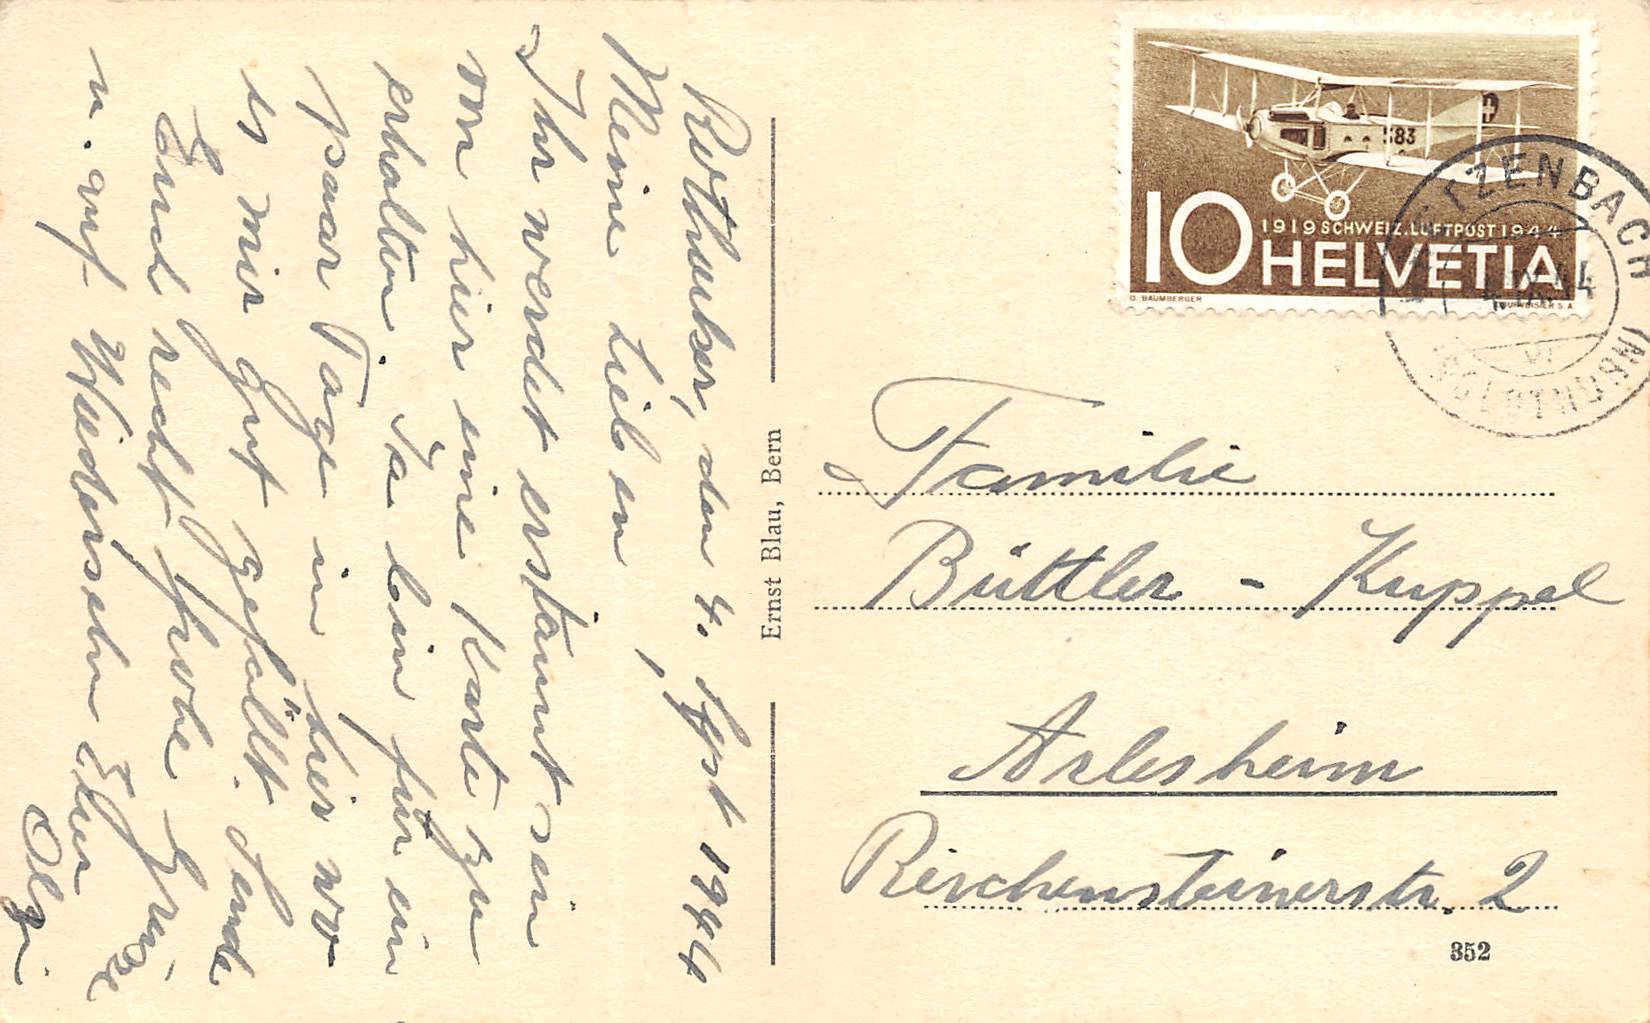 Rothacker, den 4. Sept 1944
Meine Lieben,
Ihr werdet erstaunt sein
von hier eine Karte zu
erhalten. Ja bin für ein
paar Tage in hier wo
es mir gut gefällt. Sende
Euch recht frohe Grüsse
u. auf Wiedersehn Eure
Olgi
Ernst Blau, Bern
583
1919 SCHWEIZ. LUFTPOST 1944
10 HELVETIA
O. BAUMBERGER
COURVOISIER S.A.
TZENBACH
Familie
Büttler - Kuppel
Arlesheim
Reichensteinerstr. 2
352